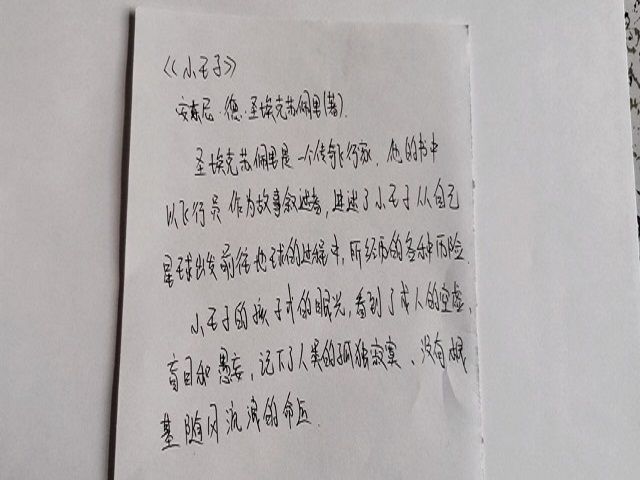 《小王子》
安东尼·德·圣埃克苏佩里(著).
圣埃克苏佩里是一个传奇飞行家, 他的书中
以飞行员作为故事叙述者, 讲述了小王子从自己
星球出发前往地球的过程中, 所经历的各种历险.
小王子的孩子式的眼光, 看到了成人的空虚、
盲目和愚妄, 记下了人类的孤独寂寞、没有根
基随风流浪的命运.